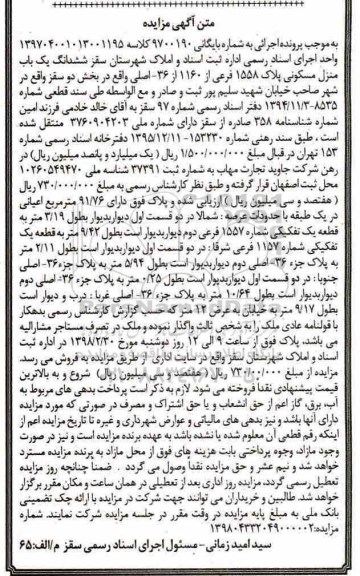 متن آگهی مزایده
به موجب پرونده اجرائی به شماره بایگانی ۹۷۰۰۱۹۰ کلاسه ۱۳۹۷۰۴۰۰۱۰۱۳۰۰۱۱۹۵
واحد اجرای اسناد رسمی اداره ثبت اسناد و املاک شهرستان سقز ششدانگ یک باب
منزل مسکونی پلاک ۱۵۵۸ فرعی از ۱۱۶۰ از ۳۶- اصلی واقع در بخش دو سقز واقع در
شهر صاحب خیابان شهید سلیم پور ثبت و صادر و مع الواسطه طی سند قطعی شماره
۸۵۳۵-۱۳۹۴/۱۱/۳ دفتر اسناد رسمی شماره ۹۷ سقز به آقای خالد خادمی فرزند امین
شماره شناسنامه ۳۵۸ صادره از سقز دارای شماره ملی ۳۷۶۰۹۰۴۲۰۳ منتقل شده
است ، طبق سند رهنی شماره ۱۵۳۲۳۰-۱۳۹۵/۱۲/۱۱ دفترخانه اسناد رسمی شماره
۱۵۳ تهران در قبال مبلغ ۱/۵۰۰/۰۰۰/۰۰۰ ریال ( یک میلیارد و پانصد میلیون ریال) در
رهن شرکت جاوید تجارت مهاب به شماره ثبت ۳۷۳۹۱ شناسه ملی ۱۰۲۶۰۵۴۹۴۷۰
محل ثبت اصفهان قرار گرفته و طبق نظر کارشناس رسمی به مبلغ ۷۳۰/۰۰۰/۰۰۰ ریال
( هفتصد و سی میلیون ریال ) ارزیابی شده و پلاک فوق دارای ۹۱/۷۶ مترمربع اعیانی
در یک طبقه با حدودات ذیل: شمالا در دو قسمت اول دیواربدیوار بطول ۳/۱۹ متر به
قطعه یک تفکیکی شماره ۱۵۵۷ فرعی دوم دیواربدیوار است بطول ۹/۴۲ متر به قطعه یک
تفکیکی شماره ۱۱۵۷ فرعی شرقا: در دو قسمت اول دیواربدیوار است بطول ۲/۱۱ متر
به پلاک جزء ۳۶- اصلی دوم دیواربدیوار است بطول ۵/۹۴ متر به پلاک جزء ۳۶- اصلی
جنوبا: در دو قسمت اول دیواربدیوار است بطول ۰/۲۵ متر به پلاک جزء ۳۶- اصلی دوم
دیواربدیوار است بطول ۱۰/۶۴ متر به پلاک جزء ۳۶- اصلی غربا : درب و دیوار است
بطول ۹/۱۷ متر به خیابان به عرض ۱۲ متر که حسب گزارش کارشناس رسمی بدهکار
با قولنامه عادی ملک را به شخص ثالث واگذار نموده و ملک در تصرف مستاجر مشارالیه
می باشد، پلاک فوق از ساعت ۹ الی ۱۲ روز دوشنبه مورخ ۱۳۹۸/۲/۳۰ در اداره ثبت
اسناد و املاک شهرستان سقز واقع در سایت اداری از طریق مزایده به فروش می رسد.
مزایده از مبلغ ۷۳۰/۰۰۰/۰۰۰ ریال (هفتصد و سی میلیون ریال) شروع و به بالاترین
قیمت پیشنهادی نقدا فروخته می شود. لازم به ذکر است پرداخت بدهی های مربوط به
آب، برق، گاز اعم از حق انشعاب و یا حق اشتراک و مصرف در صورتی که مورد مزایده
دارای آنها باشد و نیز بدهی های مالیاتی و عوارض شهرداری و غیره تا تاریخ مزایده اعم از
اینکه رقم قطعی آن معلوم شده یا نشده باشد به عهده برنده مزایده است و نیز در صورت
وجود مازاد، وجوه پرداختی بابت هزینه های فوق از محل مازاد به برنده مزایده مسترد
خواهد شد و نیم عشر و حق مزایده نقدا وصول می گردد . ضمنا چنانچه روز مزایده
تعطیل رسمی گردد، مزایده روز اداری بعد از تعطیلی در همان ساعت و مکان مقرر برگزار
خواهد شد. طالبین و خریداران می توانند جهت شرکت در مزایده با ارائه چک تضمینی
بانک ملی به مبلغ پایه مزایده در وقت مقرر در جلسه مزایده شرکت نمایند. شماره
مزایده:۱۳۹۸۰۴۳۳۲۰۴۹۰۰۰۰۰۲
سید امید زمانی- مسئول اجرای اسناد رسمی سقز م/الف:۶۵